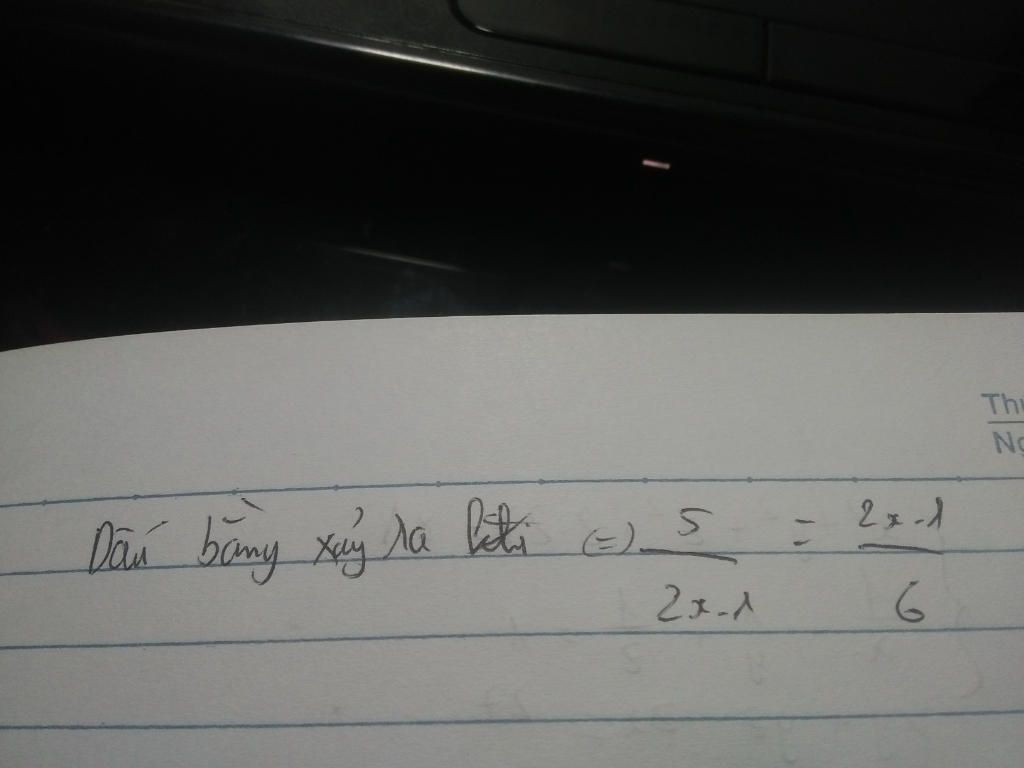 Thứ
Ng
Dấu bằng xảy ra (=) 5/(2x-1) = (2x-1)/6